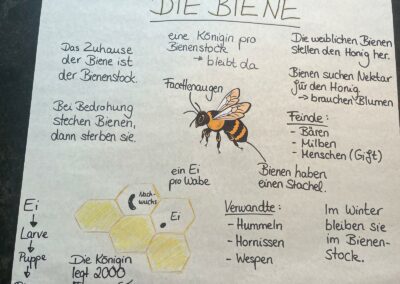 DIE BIENE
Das Zuhause
der Biene ist
der Bienenstock.
eine Königin pro
Bienenstock
→ bleibt da
Die weiblichen Bienen
stellen den Honig her.
Bienen suchen Nektar
für den Honig
→ brauchen Blumen
Facettenaugen
Bei Bedrohung
stechen Bienen,
dann sterben sie.
Feinde:
- Bären
- Milben
- Menschen (Gift)
ein Ei
pro Wabe
Bienen haben
einen Stachel.
Nach-
wuchs
Ei
Ei
↓
Larve
↓
Puppe
↓
Verwandte:
- Hummeln
- Hornissen
- Wespen
Im Winter
bleiben sie
im Bienen-
stock.
Die Königin
legt 2000